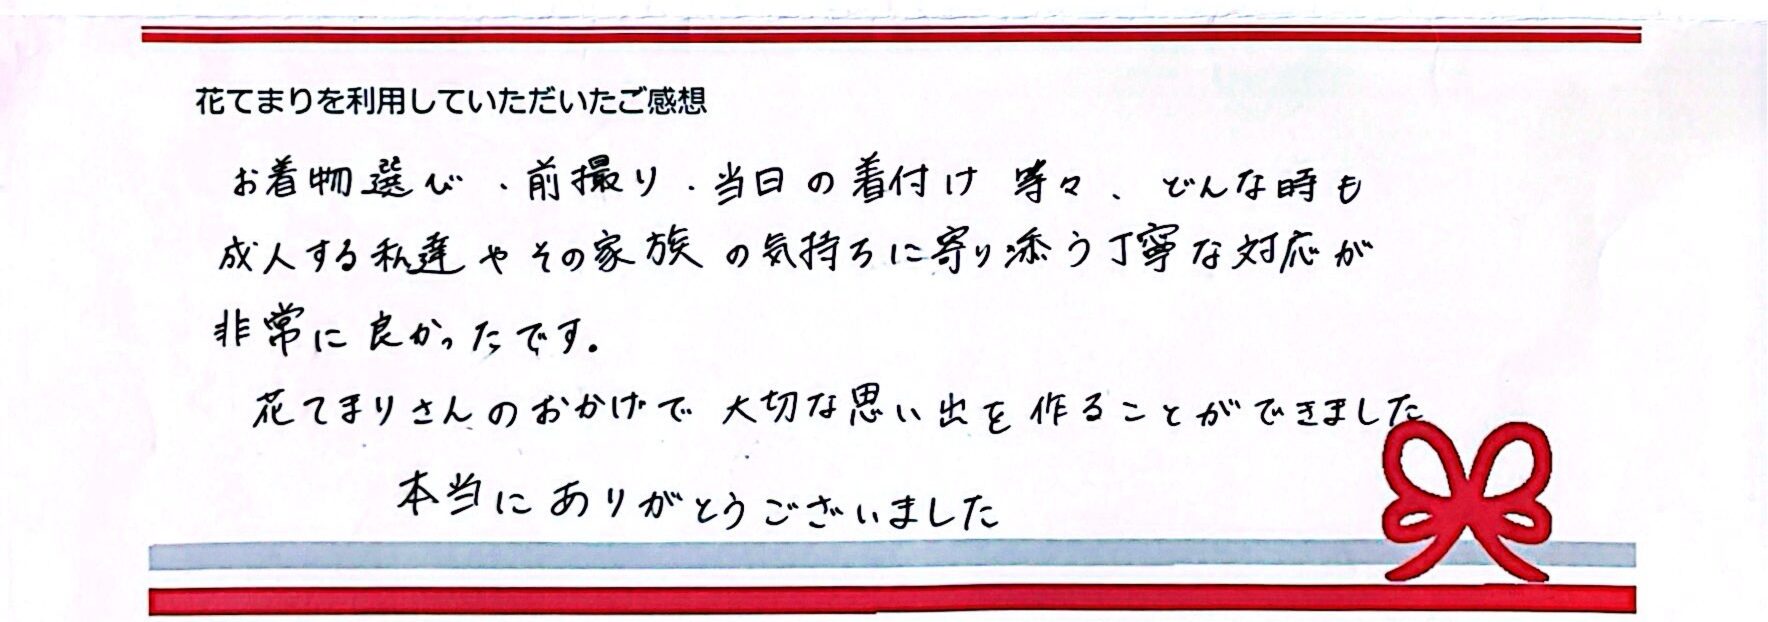 花てまりを利用していただいたご感想
お着物選び・前撮り・当日の着付け等々、どんな時も
成人する私達やその家族の気持ちに寄り添う丁寧な対応が
非常に良かったです。
花てまりさんのおかげで大切な思い出を作ることができました
本当にありがとうございました